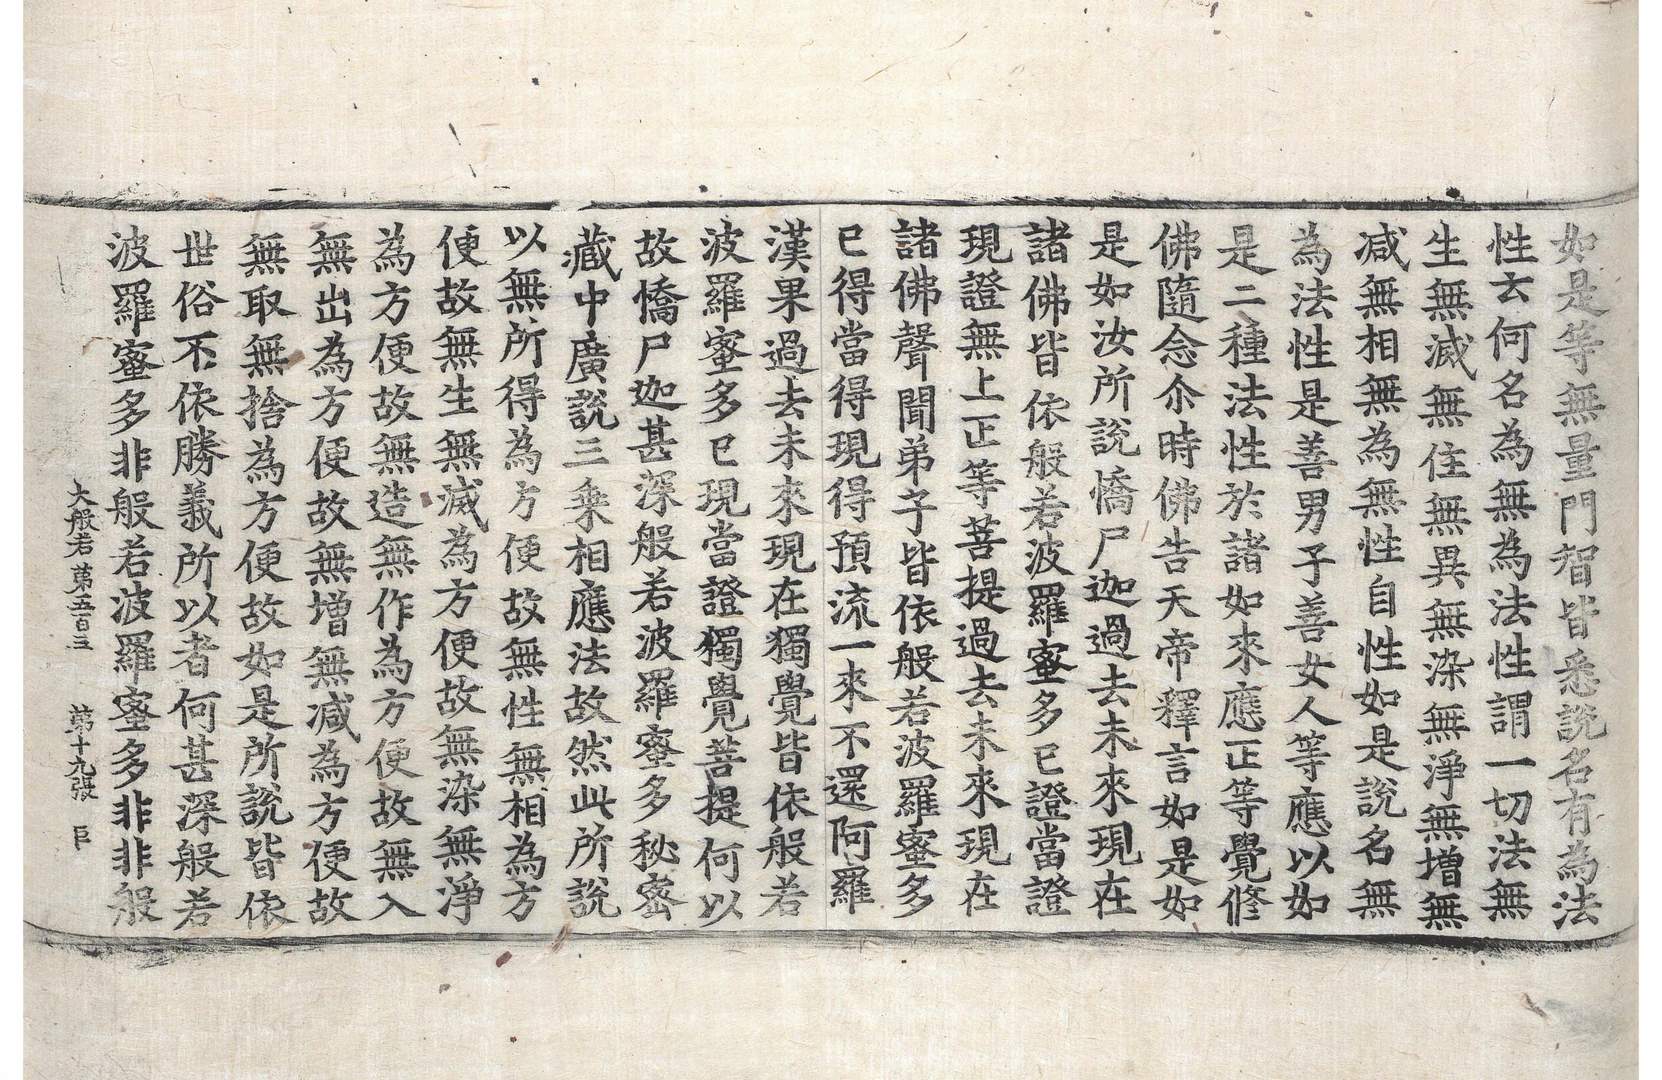 如是等無量門智皆悉說名有為法
性云何名為無為法性謂一切法無
生無滅無住無異無染無淨無增無
減無相無為無性自性如是說名無
為法性是善男子善女人等應以如
是二種法性於諸如來應正等覺修
佛隨念尒時佛告天帝釋言如是如
是如汝所說憍尸迦過去未來現在
諸佛皆依般若波羅蜜多已證當證
現證無上正等菩提過去未來現在
諸佛聲聞弟子皆依般若波羅蜜多
已得當得現得預流一來不還阿羅
漢果過去未來現在獨覺皆依般若
波羅蜜多已現當證獨覺菩提何以
故憍尸迦甚深般若波羅蜜多秘密
藏中廣說三乘相應法故然此所說
以無所得為方便故無性無相為方
便故無生無滅為方便故無染無淨
為方便故無造無作為方便故無入
無出為方便故無增無減為方便故
無取無捨為方便故如是所說皆依
世俗不依勝義所以者何甚深般若
波羅蜜多非般若波羅蜜多非非般
大般若第五百三 第十九張 巨